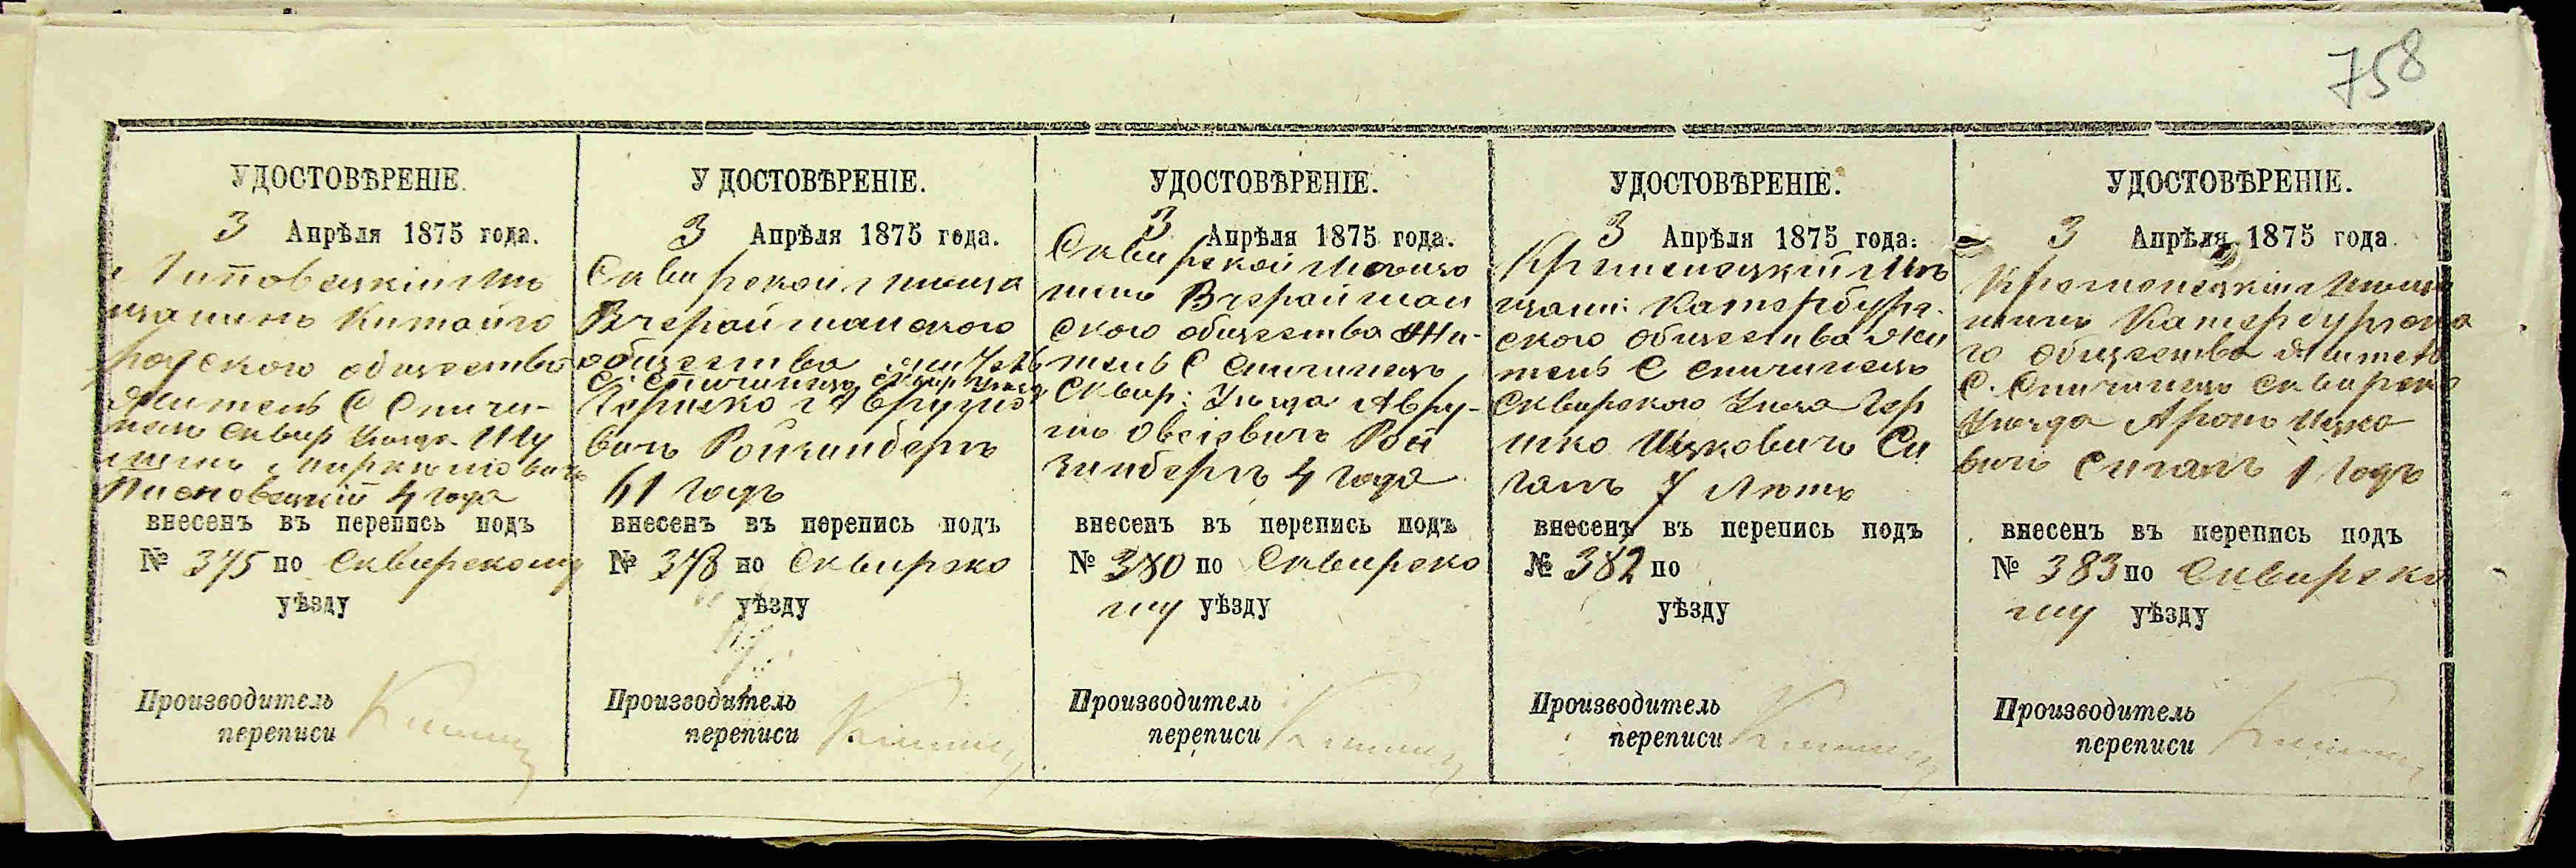 758
УДОСТОВѢРЕНІЕ.
3 Апрѣля 1875 года.
Липовецкій мѣ
щанинъ Китайго
родского общества
житель С Спичи-
нецъ Сквир Уезда
Пионовецкій 4 года
внесенъ въ перепись подъ
№ 375 по Сквирскому
уѣзду
Производитель
переписи
УДОСТОВѢРЕНІЕ.
3 Апрѣля 1875 года.
Сквирской мѣща
Вчерайшанского
общества житель
С. Спичинецъ Сквир Уезда
Гершко Аврумо
вичъ Ройзинбергъ
61 годъ
внесенъ въ перепись подъ
№ 378 по Сквирско
уѣзду
Производитель
переписи
УДОСТОВѢРЕНІЕ.
3 Апрѣля 1875 года.
Сквирской мѣща
нинъ Вчерайшан
ского общества Жи-
тель С Спичинецъ
Сквир: Уезда Авру-
мъ Овсіевичъ Рой
зинбергъ 4 года
внесенъ въ перепись подъ
№ 380 по Сквирско
му уѣзду
Производитель
переписи
УДОСТОВѢРЕНІЕ.
3 Апрѣля 1875 года.
Кременецкій Мѣ
щани: Катербург-
ского общества жи
тель С Спичинецъ
Сквирского Уезда Гер
шко Ицковичъ Си
галъ 7 Летъ
внесенъ въ перепись подъ
№ 382 по
уѣзду
Производитель
переписи
УДОСТОВѢРЕНІЕ.
3 Апрѣля 1875 года.
Кременецкій Мѣща
нинъ Катербургска
го общества житель
С. Спичинецъ Сквирск
Уезда Аронъ Ицко
вичъ Сигалъ 1 годъ
внесенъ въ перепись подъ
№ 383 по Сквирско
му уѣзду
Производитель
переписи